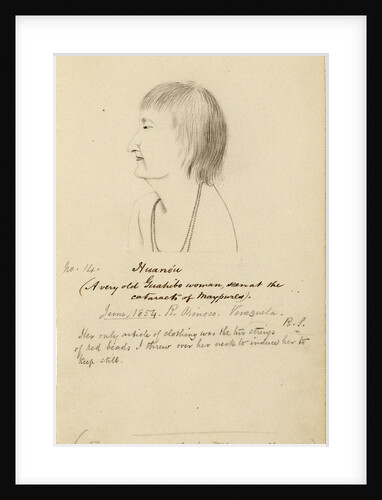 no. 14. Huanéu
(A very old Guahibo woman, seen at the
cataracts of Maypures).
June, 1854. R. Orinoco. Venezuela.
R.S.
Her only article of clothing was the two strings
of red beads I threw over her neck to induce her to
keep still.